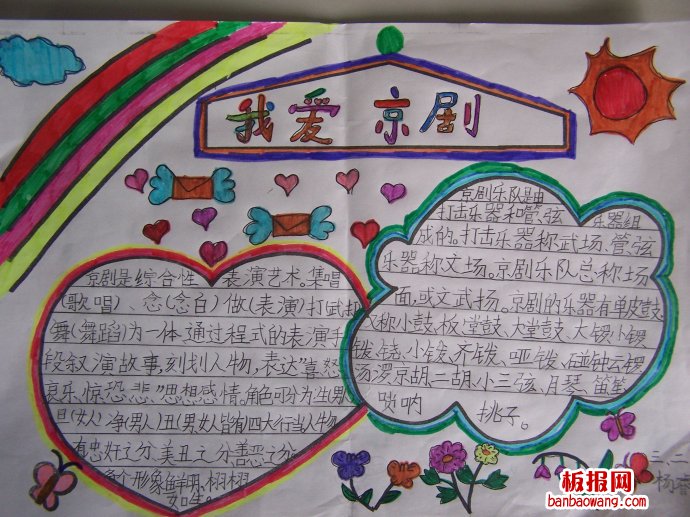 我爱京剧
京剧是综合性表演艺术。集唱
(歌唱)、念(念白)做(表演)打武打
舞(舞蹈)为一体通过程式的表演手
段叙演故事,刻划人物,表达"喜怒
哀乐、惊恐悲"思想感情,角色可分为生(男人)
旦(女人)净(男人)丑(男女人皆有四大行当人物
有忠奸之分、美丑之分、善恶之分
个个形象鲜明、栩栩
如生
京剧乐队是由
打击乐器和管弦乐器组
成的。打击乐器称武场、管弦
乐器称文场。京剧乐队总称场
面,或文武扬。京剧的乐器有单皮鼓
又称小鼓、板、堂鼓、大堂鼓、大锣、小锣
钹、铙、小钹、齐钹、哑钹、碰钟云锣
汤锣京胡、二胡、小三弦、月琴、笛笙
唢呐 挑子。
三、二
杨
板报网
banbaowang.com